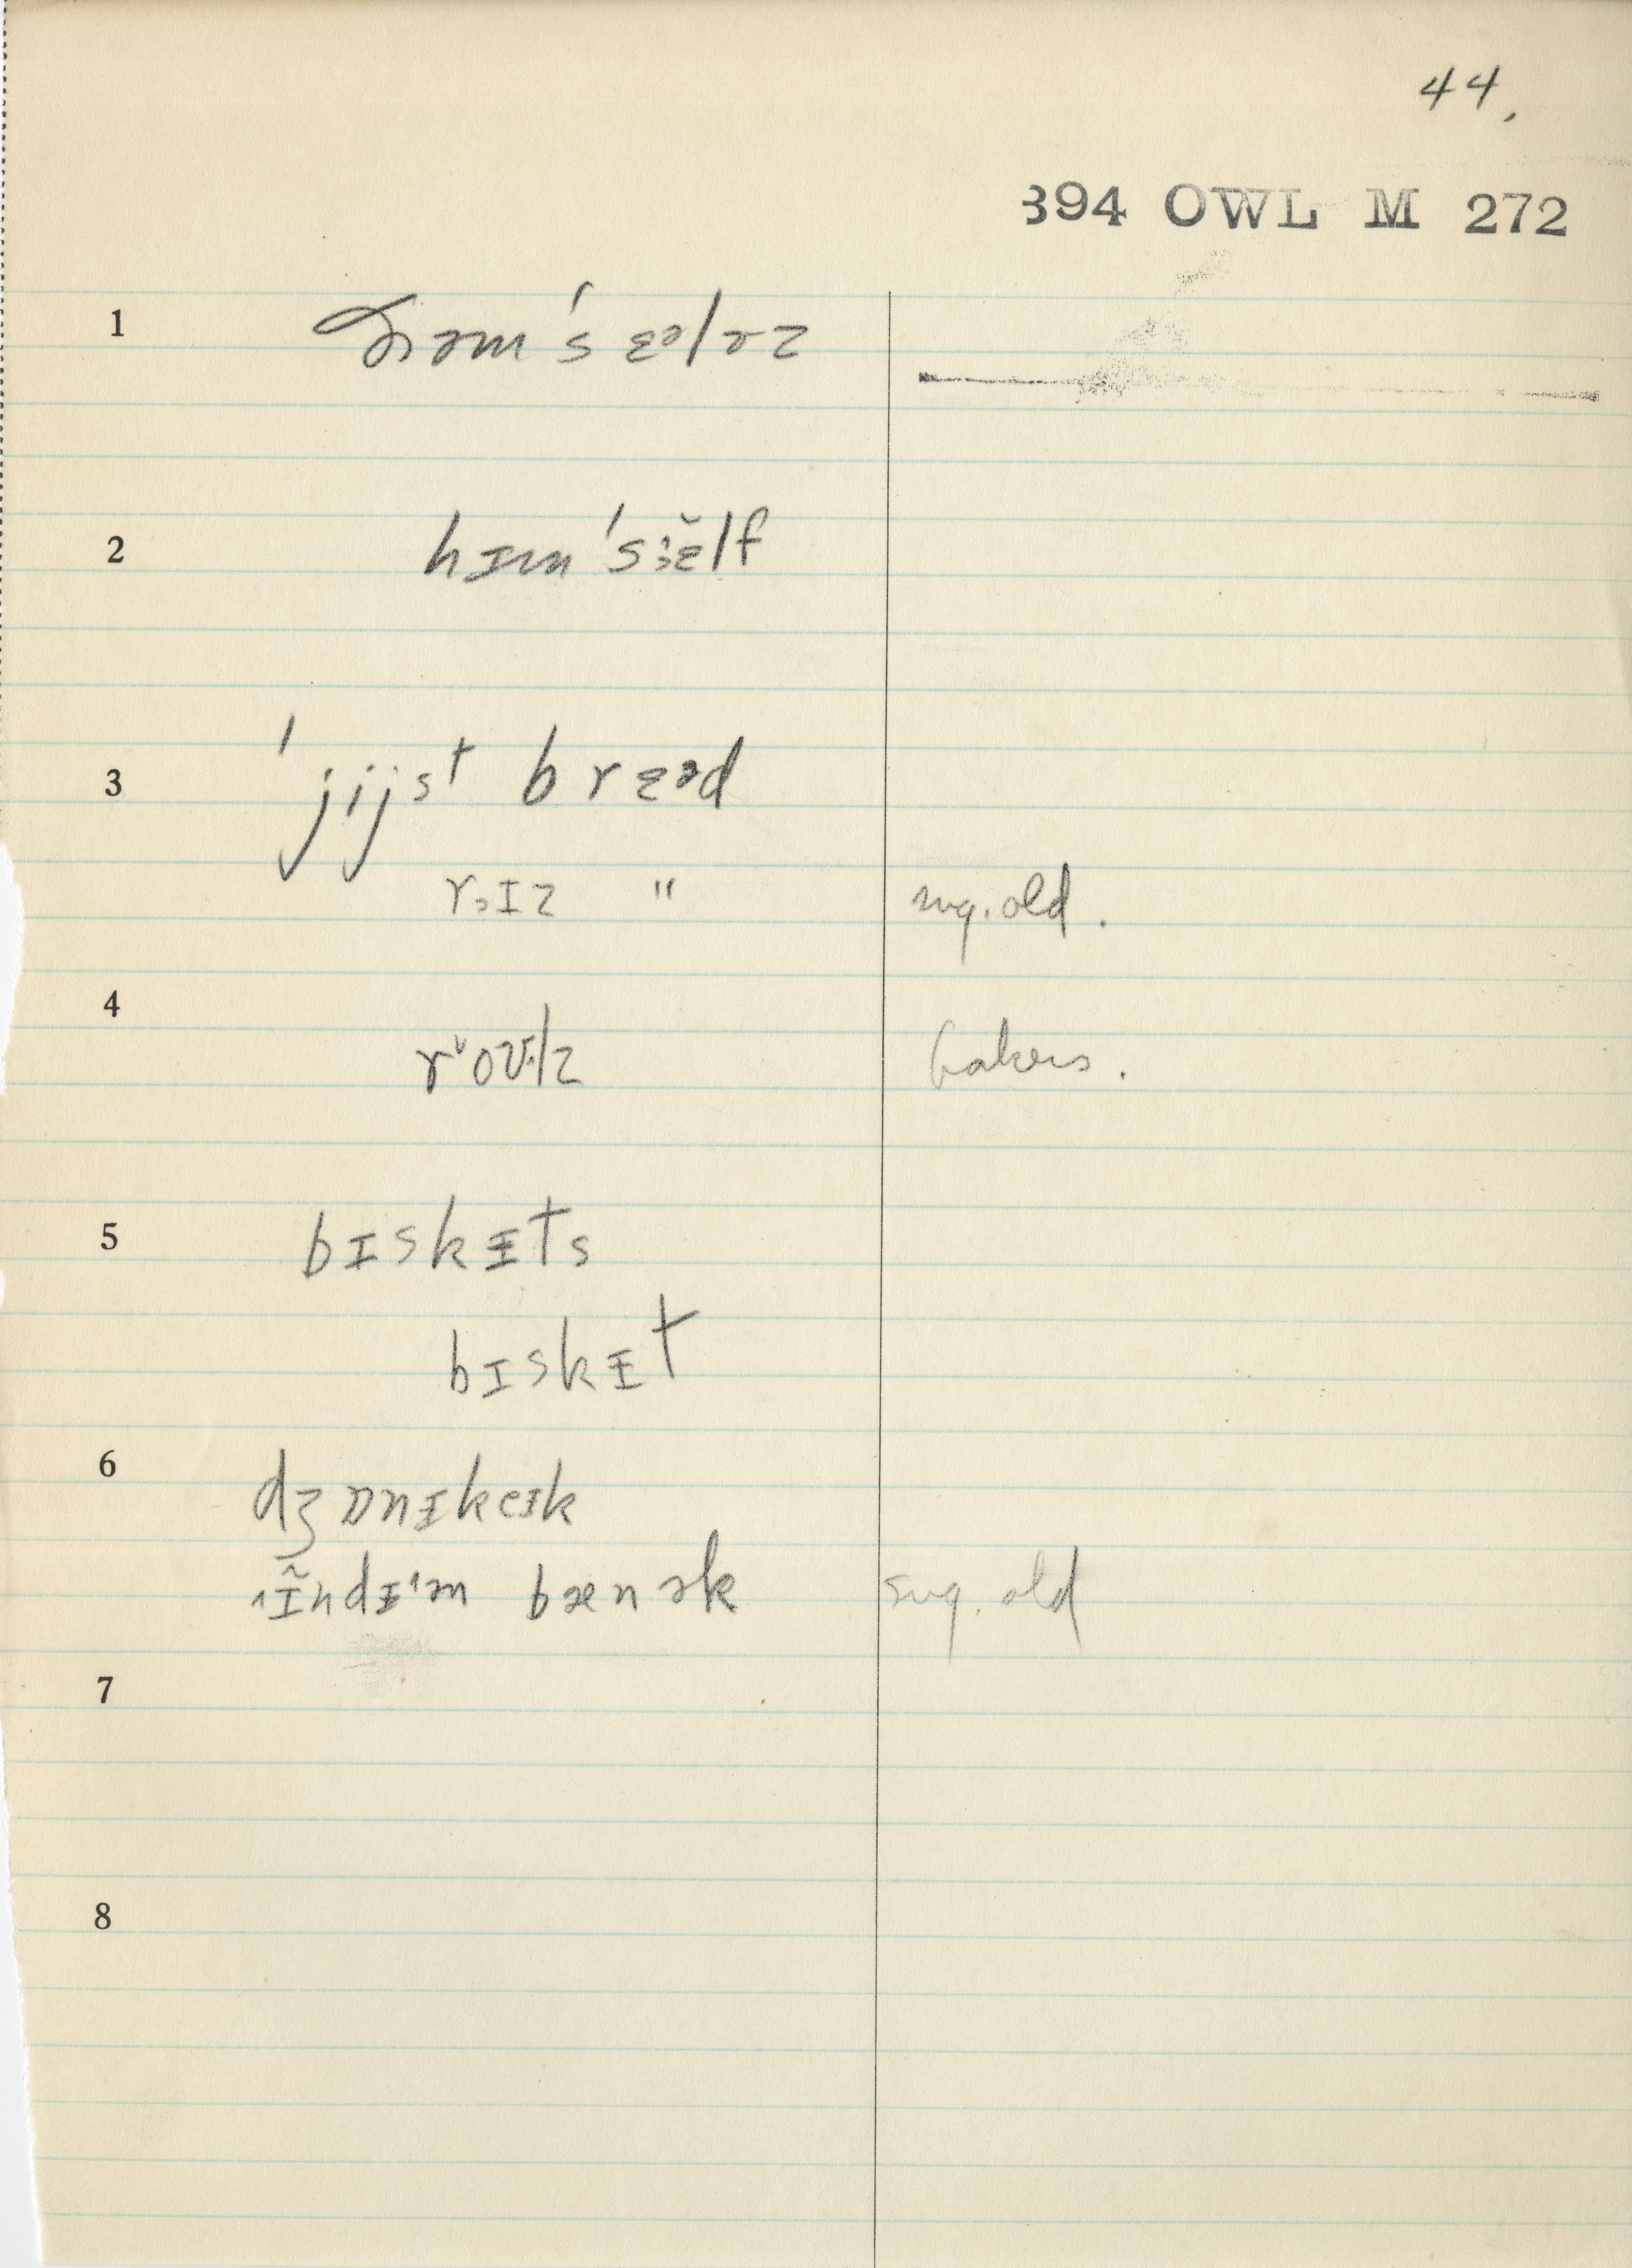 44.
394 OWL M 272
1 ðəm'sɛəlvz
2 hɪm'sɛ̆lf
3 'jijst brɛəd
rɔɪz " sug. old.
4 rᵛoʊlz bakers.
5 bɪskᵻts
bɪskᵻt
6 dʒɒnᵻkeɪk
ɪ̃ndᵻən bænək sug. old
7
8